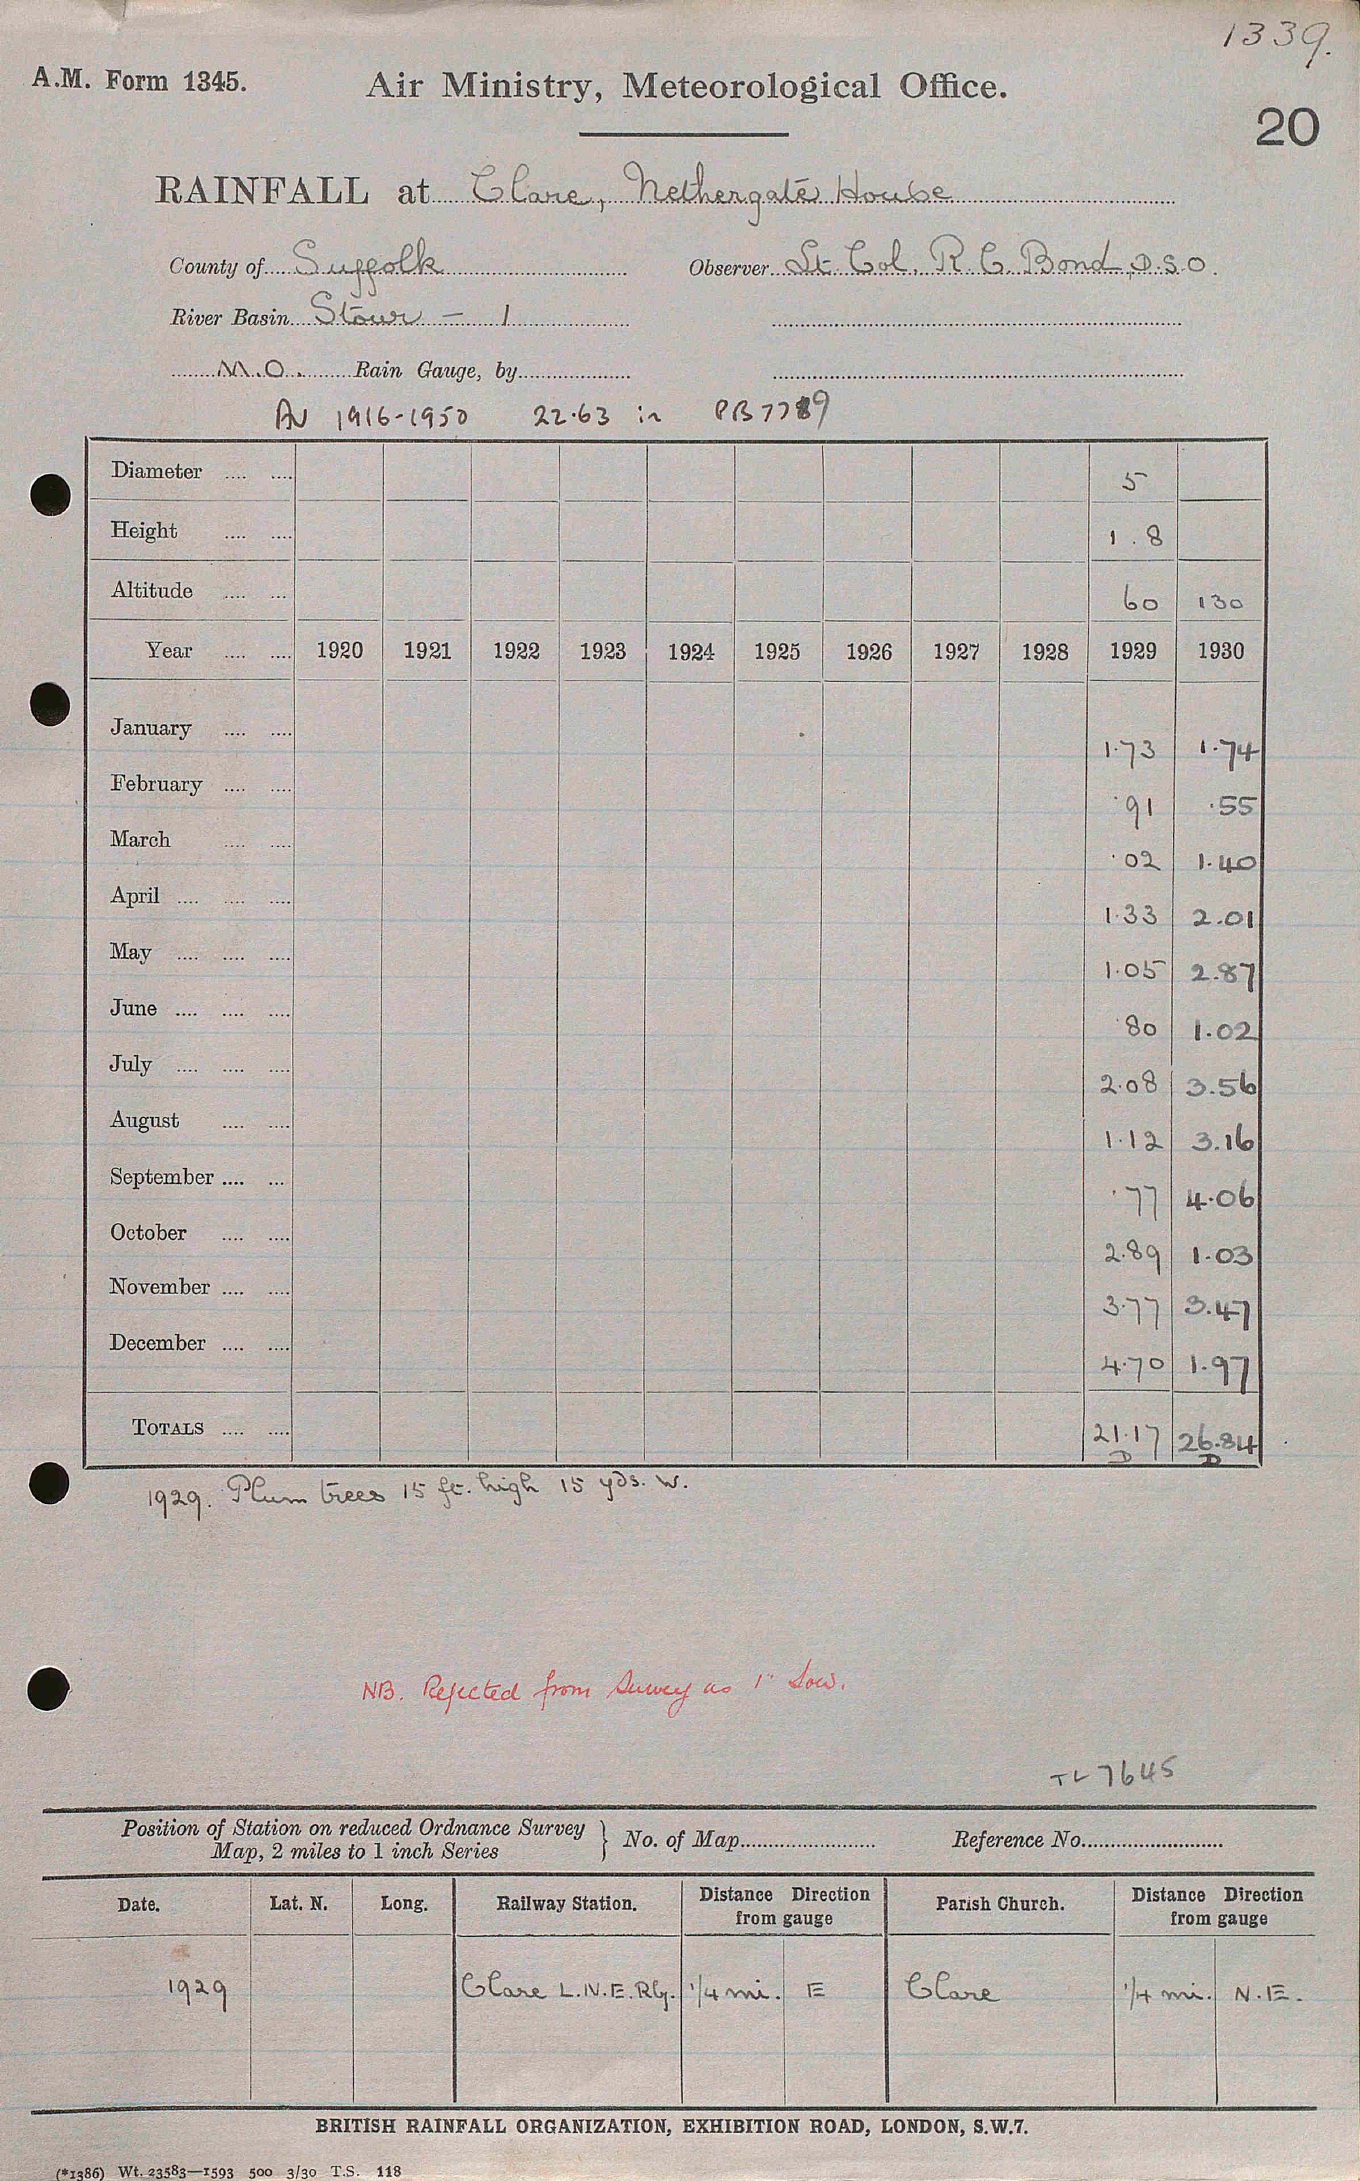 1339.
A.M. Form 1345. Air Ministry, Meteorological Office.
20
RAINFALL at Clare, Nethergate House
County of Suffolk Observer Lt. Col. R. C. Bond, D.S.O.
River Basin Stour - 1
M.O. Rain Gauge, by
Av 1916-1950 22.63 in PB7789
Diameter .... .... 5
Height .... .... 1.8
Altitude .... .... 60 130
Year .... .... 1920 1921 1922 1923 1924 1925 1926 1927 1928 1929 1930
January .... .... 1.73 1.74
February .... .... .91 .55
March .... .... .02 1.40
April .... .... .... 1.33 2.01
May .... .... .... 1.05 2.87
June .... .... .... .80 1.02
July .... .... .... 2.08 3.56
August .... .... 1.12 3.16
September .... .... .77 4.06
October .... .... 2.89 1.03
November .... .... 3.77 3.47
December .... .... 4.70 1.97
TOTALS .... .... 21.17 26.84
D D
1929. Plum trees 15 ft. high 15 yds. W.
NB. Rejected from Survey as 1" low.
TL 7645
Position of Station on reduced Ordnance Survey
Map, 2 miles to 1 inch Series } No. of Map Reference No.
Date. Lat. N. Long. Railway Station. Distance Direction from gauge Parish Church. Distance Direction from gauge
1929 Clare L.N.E.Rly. 1/4 mi. E Clare 1/4 mi. N.E.
BRITISH RAINFALL ORGANIZATION, EXHIBITION ROAD, LONDON, S.W.7.
(*1386) Wt. 23583—1593 500 3/30 T.S. 118